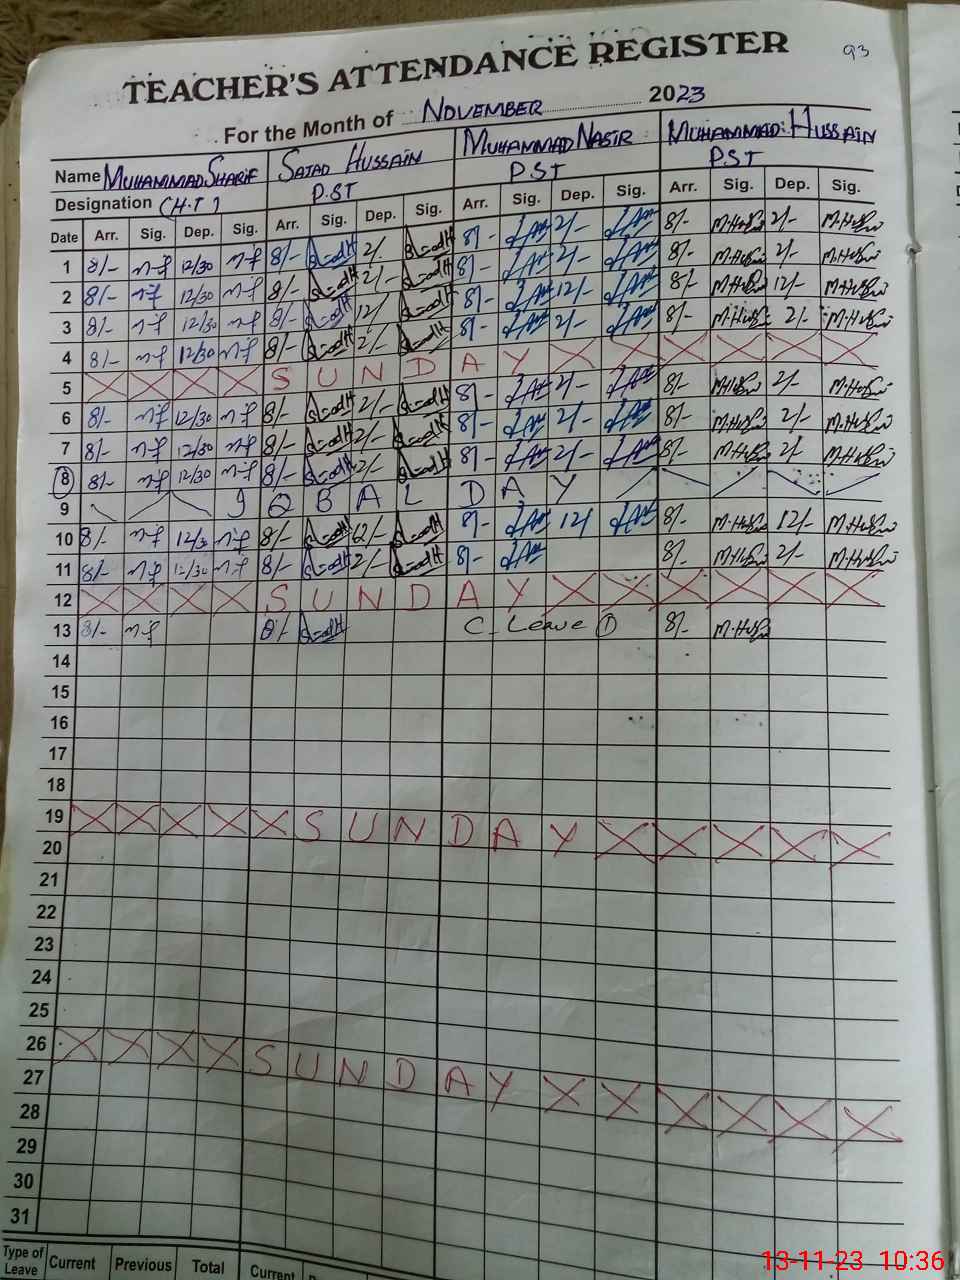 93
TEACHER'S ATTENDANCE REGISTER
For the Month of NOVEMBER 2023
Name MUHAMMAD SHARIF SAJAD HUSSAIN MUHAMMAD NASIR MUHAMMAD HUSSAIN
Designation (H.T) P.ST PST PST
Date Arr. Sig. Dep. Sig. Arr. Sig. Dep. Sig. Arr. Sig. Dep. Sig. Arr. Sig. Dep. Sig.
1 8/- 12/30 8/- 2/- 8/- 2/- 8/- 2/-
2 8/- 12/30 8/- 2/- 8/- 2/- 8/- 2/-
3 8/- 12/30 8/- 12/ 8/- 12/- 8/- 12/-
4 8/- 12/30 8/- 2/- 8/- 2/- 8/- 2/-
5 SUNDAY
6 8/- 12/30 8/- 2/- 8/- 2/- 8/- 2/-
7 8/- 12/30 8/- 2/- 8/- 2/- 8/- 2/-
8 8/- 12/30 8/- 2/- 8/- 2/- 8/- 2/-
9 IQBAL DAY
10 8/- 12/30 8/- 12/- 8/- 12/ 8/- 12/-
11 8/- 12/30 8/- 2/- 8/- 8/- 2/-
12 SUNDAY
13 8/- 8/- C-Leave 1 8/-
14
15
16
17
18
19 SUNDAY
20
21
22
23
24
25
26 SUNDAY
27
28
29
30
31
Type of Leave Current Previous Total Current
13-11-23 10:36